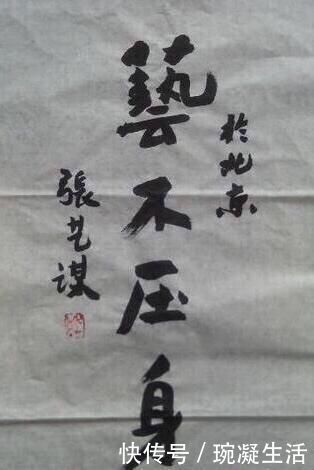 於北京
藝不压身
張艺谋
快传号/琬凝生活